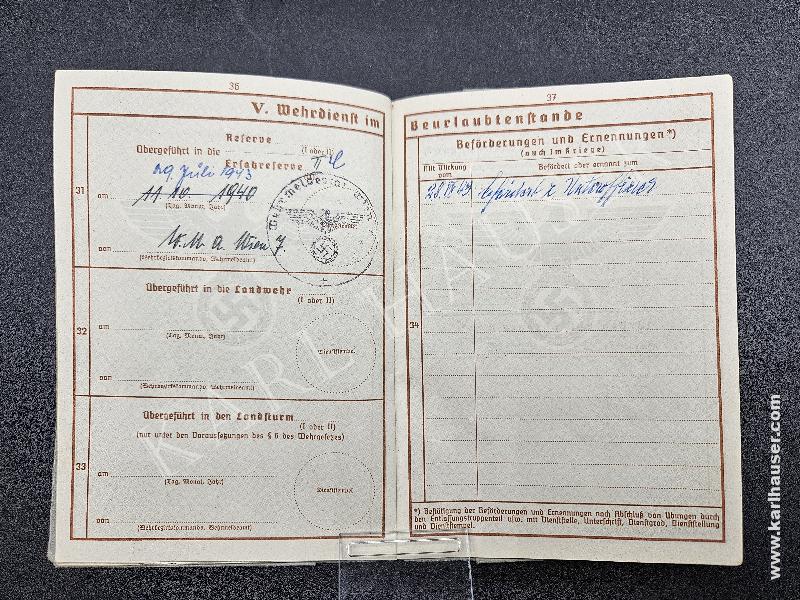 36
V. Wehrdienst im
Reserve
Übergeführt in die (I oder II)
Ersatzreserve II
29 Juli 1943
31
am 11. 10. 1940
(Tag, Monat, Jahr)
von W. M. A. Wien 7.
(Wehrbezirkskommando, Wehrmeldeamt)
Wehrmeldeamt Wien
Übergeführt in die Landwehr
(I oder II)
32
am
(Tag, Monat, Jahr)
Dienststempel
von
(Wehrbezirkskommando, Wehrmeldeamt)
Übergeführt in den Landsturm
(I oder II)
(nur unter den Voraussetzungen des § 6 des Wehrgesetzes)
33
am
(Tag, Monat, Jahr)
Dienststempel
von
(Wehrbezirkskommando, Wehrmeldeamt)
37
Beurlaubtenstande
Beförderungen und Ernennungen*)
(auch im Kriege)
Mit Wirkung vom
Befördert oder ernannt zum
Unteroffizier
34
*) Bestätigung der Beförderungen und Ernennungen nach Abschluß von Übungen durch
den Entlassungstruppenteil usw. mit Dienststelle, Unterschrift, Dienstgrad, Dienststellung
und Dienststempel.
KARL HAUSER
www.karlhauser.com